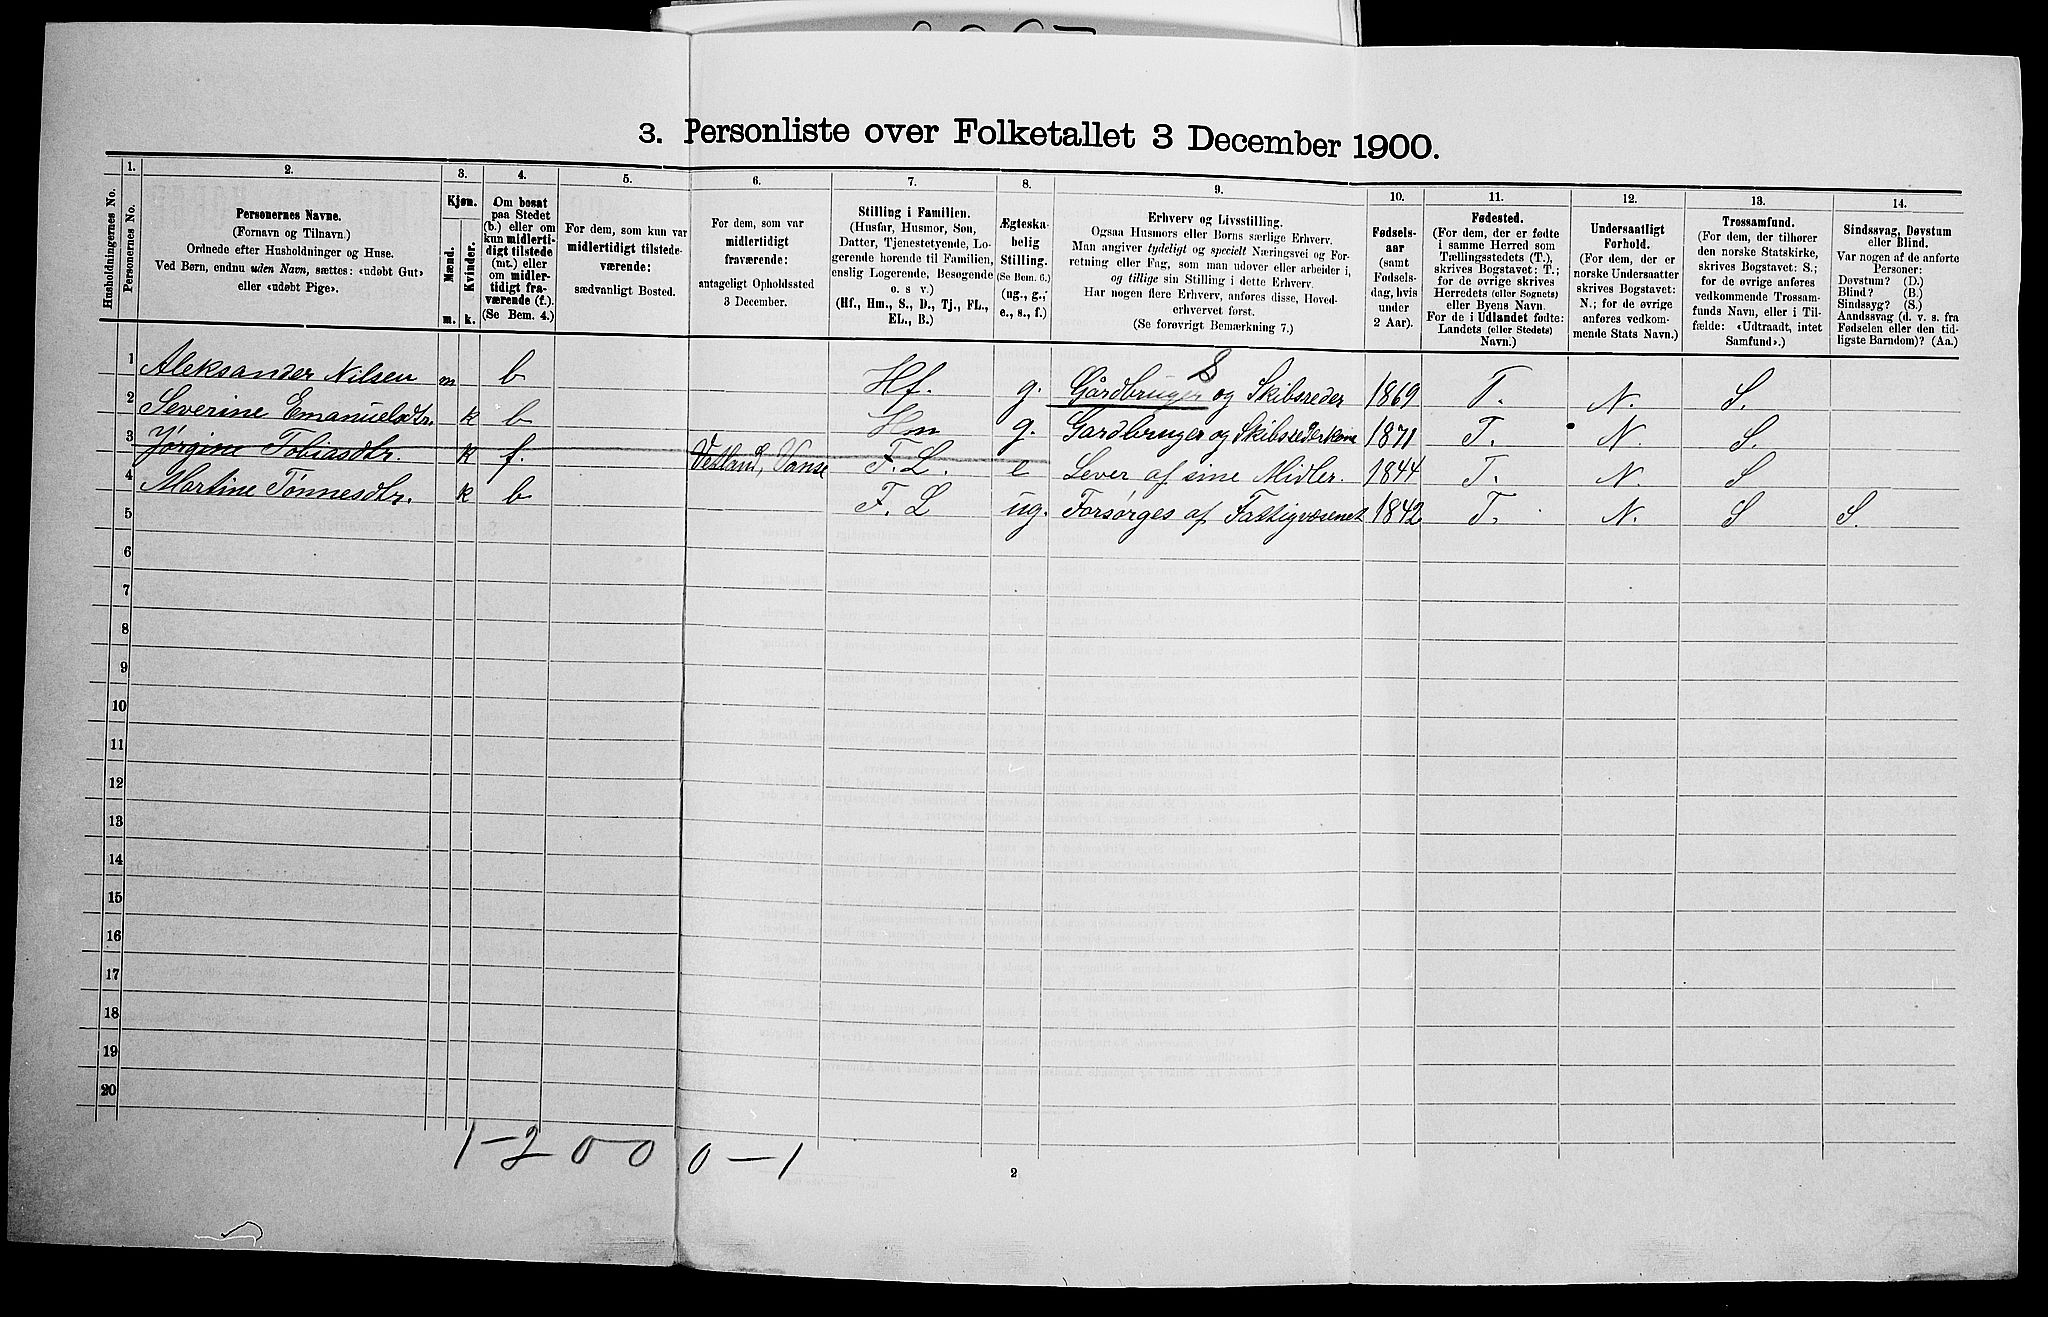 3. Personliste over Folketallet 3 December 1900.
1. 2. 3. 4. 5. 6. 7. 8. 9. 10. 11. 12. 13. 14.
Husholdningernes No.
Personernes No.
Personernes Navne.
(Fornavn og Tilnavn.)
Ordnede efter Husholdninger og Huse.
Ved Børn, endnu uden Navn, sættes: «udøbt Gut»
eller «udøbt Pige».
Kjøn.
Mænd.
Kvinder.
m. k.
Om bosat
paa Stedet
(b.) eller om
kun midlerti-
digt tilstede
(mt.) eller
om midler-
tidigt fra-
værende (f.)
(Se Bem. 4.)
For dem, som kun var
midlertidigt tilstede-
værende:
sædvanligt Bosted.
For dem, som var
midlertidigt
fraværende:
antageligt Opholdssted
3 December.
Stilling i Familien.
(Husfar, Husmor, Søn,
Datter, Tjenestetyende, Lo-
gerende hørende til Familien,
enslig Logerende, Besøgende
o. s v.)
(Hf., Hm., S., D., Tj., FL.,
EL., B.)
Ægteska-
belig
Stilling.
(Se Bem. 6.)
(ug., g.,
e., s., f.)
Erhverv og Livsstilling.
Ogsaa Husmors eller Børns særlige Erhverv.
Man angiver tydeligt og specielt Næringsvei og For-
retning eller Fag, som man udøver eller arbeider i,
og tillige sin Stilling i dette Erhverv.
Har nogen flere Erhverv, anføres disse, Hoved-
erhvervet først.
(Se forøvrigt Bemærkning 7.)
Fødsels-
aar
(samt
Fødsels-
dag, hvis
under
2 Aar).
Fødested.
(For dem, der er fødte
i samme Herred som
Tællingsstedets (T.),
skrives Bogstavet: T.;
for de øvrige skrives
Herredets (eller Sognets)
eller Byens Navn.
For de i Udlandet fødte:
Landets (eller Stedets)
Navn.)
Undersaatligt
Forhold.
(For dem, der er
norske Undersaatter
skrives Bogstavet:
N.; for de øvrige
anføres vedkom-
mende Stats Navn.)
Trossamfund.
(For dem, der tilhører
den norske Statskirke,
skrives Bogstavet: S.;
for de øvrige anføres
vedkommende Trossam-
funds Navn, eller i Til-
fælde: «Udtraadt, intet
Samfund».)
Sindssvag, Døvstum
eller Blind.
Var nogen af de anførte
Personer:
Døvstum? (D.)
Blind? (B.)
Sindssyg? (S.)
Aandssvag (d. v. s. fra
Fødselen eller den tid-
ligste Barndom)? (Aa.)
1 Aleksander Nilsen m b Hf. g. Gårdbruger og Skibsreder 1869 T. N. S.
2 Severine Emanuelsdtr. k b Hm g. Gardbruger og Skibsrederkone 1871 T. N. S.
3 Jørgine Tobiasdtr. k f. Vetland, Vanse F. L. e Lever af sine Midler. 1844 T. N. S
4 Martine Tønnesdtr. k b F. L ug. Forsørges af Fattigvæsenet 1842 T. N. S S.
5
6
7
8
9
10
11
12
13
14
15
16
17
18
19
20
1-2 0 0 0-1
2